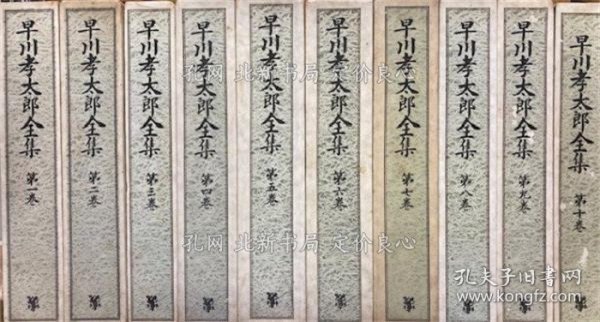 早川孝太郎全集 第一巻
早川孝太郎全集 第二巻
早川孝太郎全集 第三巻
早川孝太郎全集 第四巻
早川孝太郎全集 第五巻
早川孝太郎全集 第六巻
早川孝太郎全集 第七巻
早川孝太郎全集 第八巻
早川孝太郎全集 第九巻
早川孝太郎全集 第十巻
孔网 北新书局 定价良心
孔网 北新书局 定价良心
孔夫子旧书网
www.kongfz.com